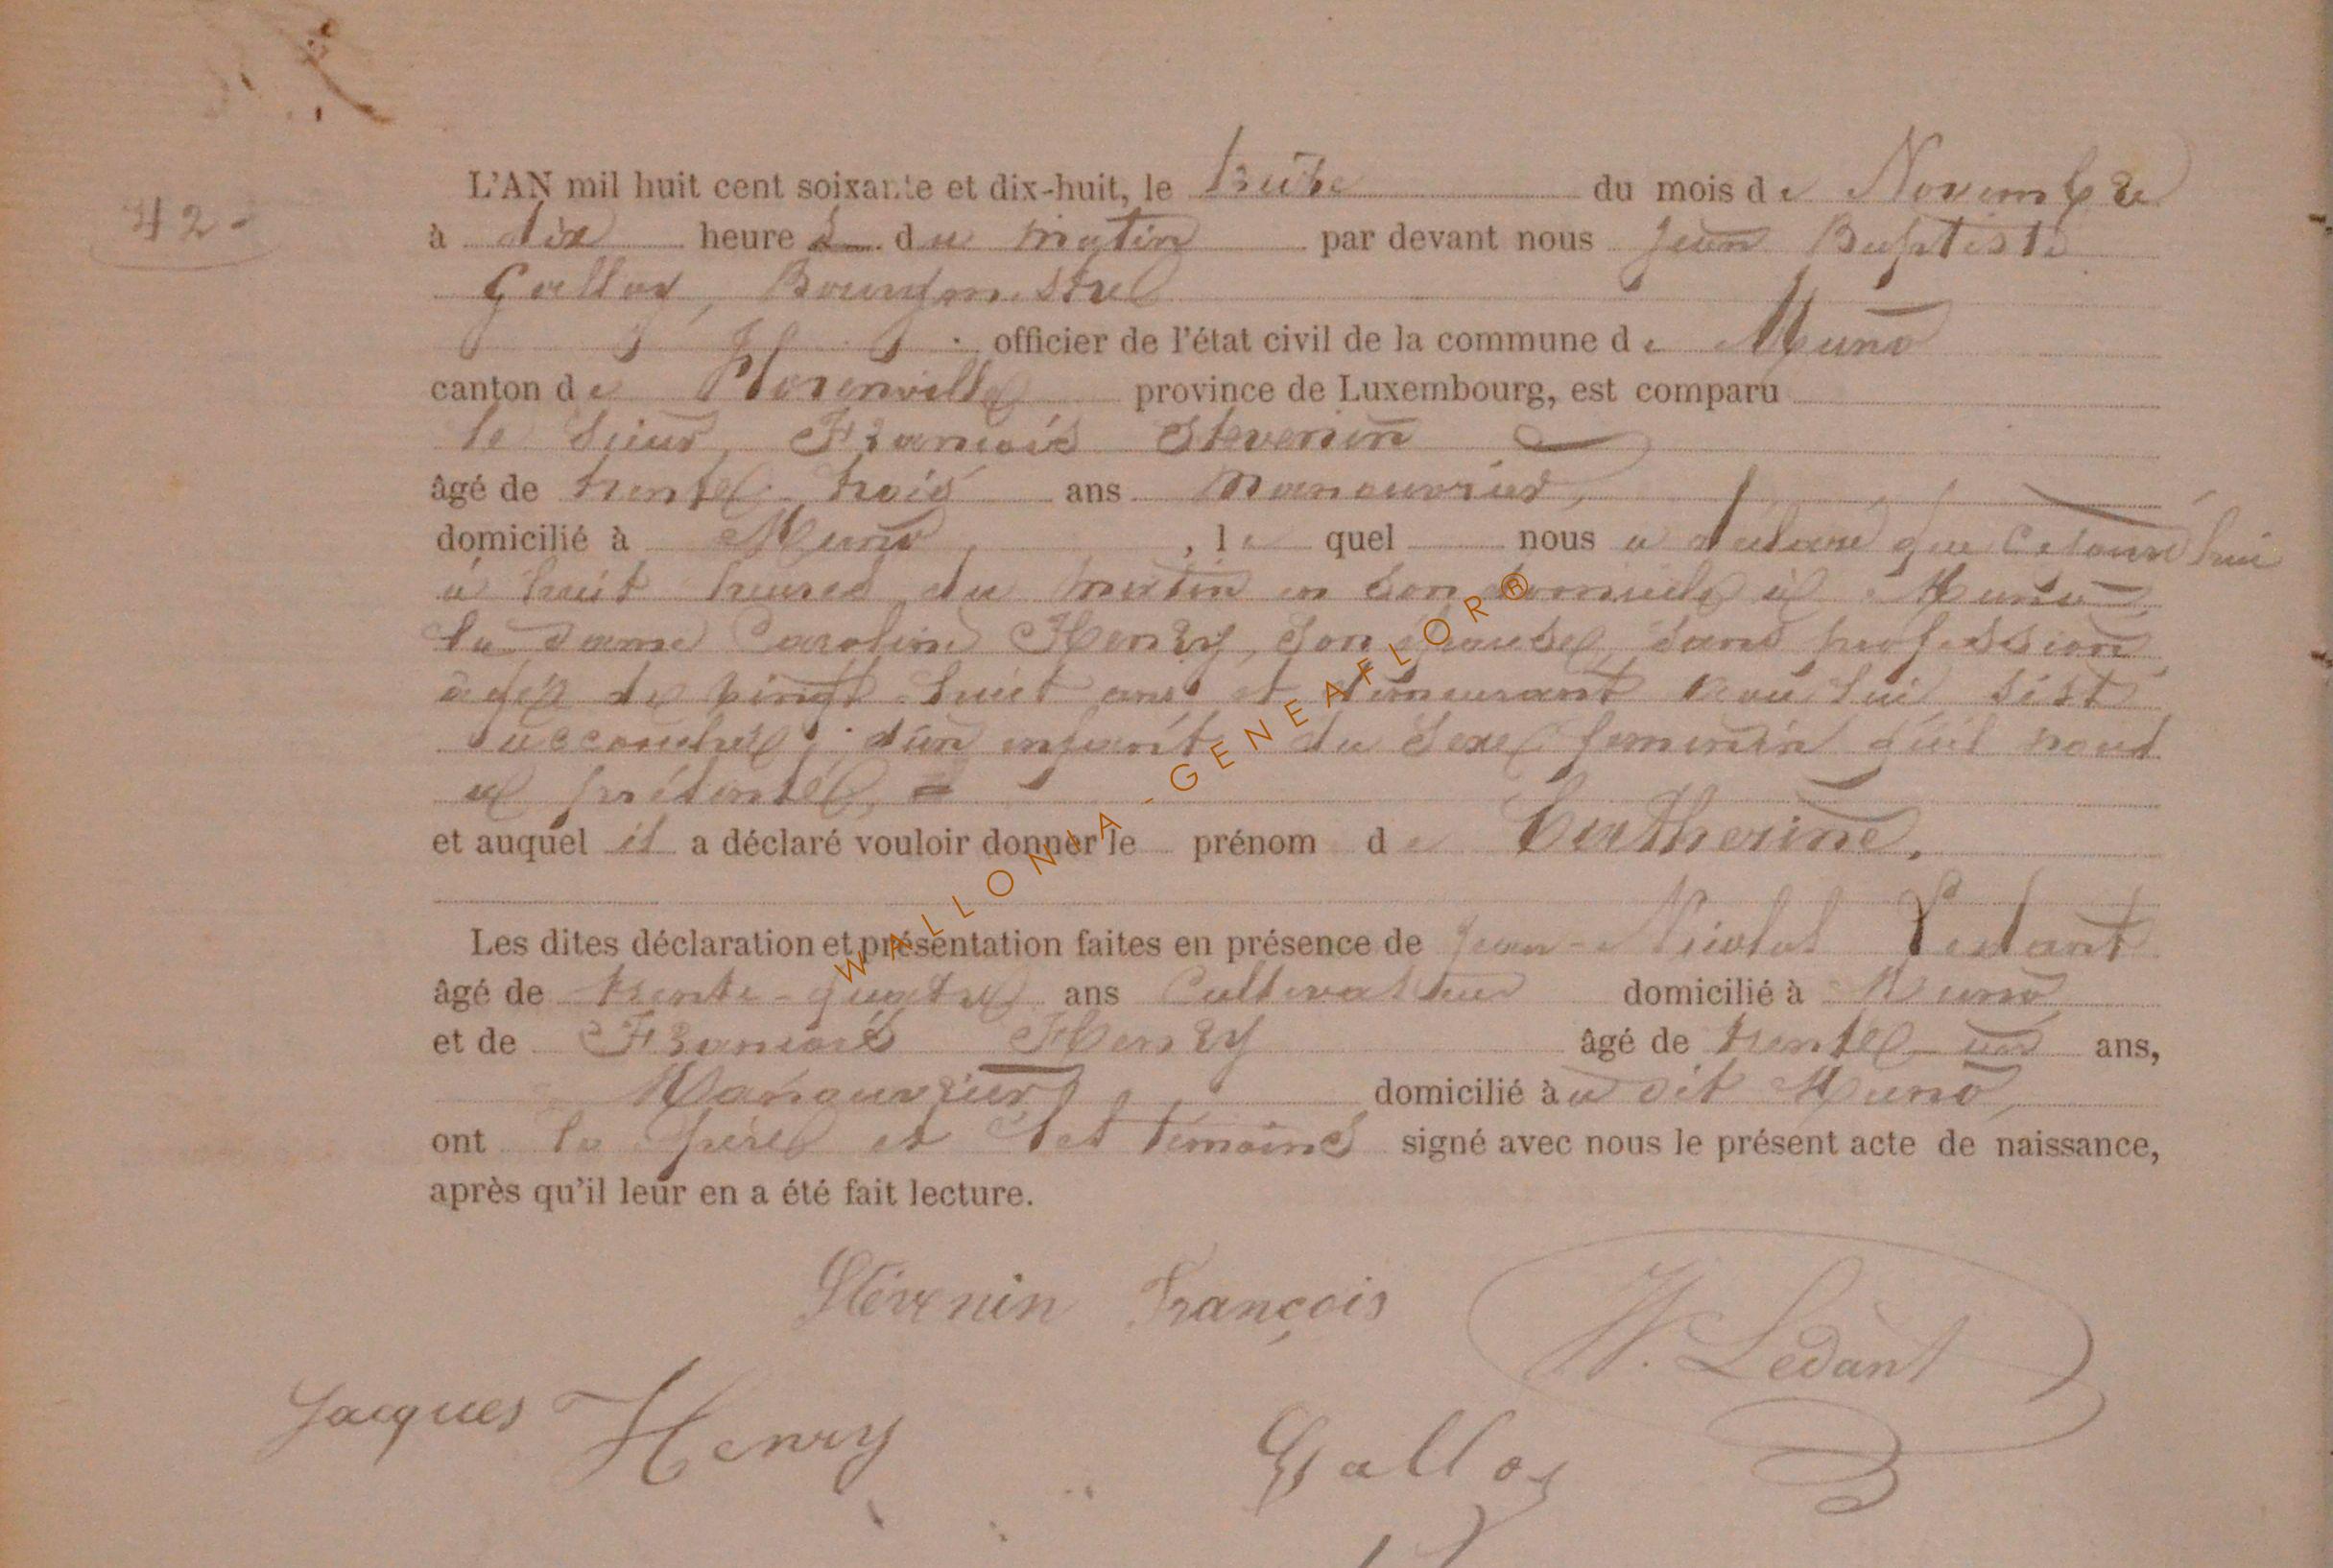 42-
L'AN mil huit cent soixante et dix-huit, le treize du mois de Novembre
à dix heures du matin par devant nous Jean Baptiste
Galloy, Bourgmestre
officier de l'état civil de la commune de Muno
canton de Florenville province de Luxembourg, est comparu
le sieur François Stevenin
âgé de trente trois ans Manouvrier,
domicilié à Muno, le quel nous a déclaré que cejourd'hui
à huit heures du matin en son domicile à Muno
la dame Caroline Henry, son épouse, sans profession
âgée de vingt huit ans et demeurant avec lui s'est
accouchée, d'un enfant du sexe feminin qu'il nous
a présenté,
et auquel il a déclaré vouloir donner le prénom de Catherine.
Les dites déclaration et présentation faites en présence de Jean-Nicolas Ledant
âgé de trente-quatre ans Cultivateur domicilié à Muno
et de François Henry âgé de trente-un ans,
Manouvrier domicilié à u dit Muno,
ont le père et les témoins signé avec nous le présent acte de naissance,
après qu'il leur en a été fait lecture.
Stévenin François
N. Ledant
Jacques Henry
Galloy
WALLONIA-GENEAFLOR®